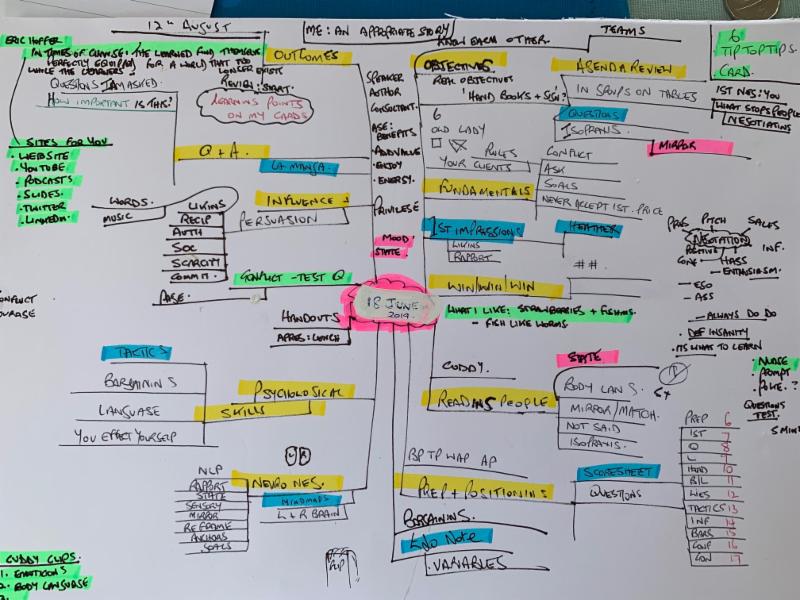 12th AUGUST
ME: AN APPROPRIATE STORY
KNOW EACH OTHER.
TEAMS
6
TIPTOPTIPS
CARD.
ERIC HOFFER
IN TIMES OF CHANGE: THE LEARNED FIND THEMSELVES
PERFECTLY EQUIPPED FOR A WORLD THAT NO
LONGER EXISTS
WHILE THE LEARNERS
QUESTIONS I AM ASKED.
HOW IMPORTANT IS THIS?
OUTCOMES
REVIEW: START.
LEARNING POINTS
ON MY CARDS
SPEAKER
AUTHOR
CONSULTANT.
BENEFITS
ADD VALUE
ENJOY
ENERGY.
PRIVILEGE
MOOD
STATE
Q + A.
LA MANGA.
SITES FOR YOU
• WEBSITE
• YOUTUBE
• PODCASTS
• SLIDES
• TWITTER
• LINKEDIN
WORDS.
MUSIC
INFLUENCE +
PERSUASION
LIKING
RECIP
AUTH
SOC
SCARCITY
COMMIT.
CONFLICT - TEST Q
HANDOUTS
APRES: LUNCH
18 JUNE
2019.
OBJECTIVES
REAL OBJECTIVES
6
OLD LADY
RULES
YOUR CLIENTS
FUNDAMENTALS
AGENDA REVIEW
IN GROUPS ON TABLES
QUESTIONS
ISOPRAMS.
CONFLICT
ASK
GOALS
NEVER ACCEPT 1ST. PRICE
MIRROR
WHAT STOPS PEOPLE
NEGOTIATING
1ST IMPRESSIONS
LIKING
RAPPORT
HEATHER
PITCH
SALES
NEGOTIATION
POSITIVE
INF.
HASS
ENTHUSIASM.
- EGO
- ASS
- ALWAYS DO DO
• DEF INSANITY
• ITS WHAT TO LEARN
WIN/WIN/WIN
##
WHAT I LIKE: STRAWBERRIES + FISHING
- FISH LIKE WORMS
CUDDY.
READING PEOPLE
STATE
BODY LANG
MIRROR/MATCH.
NOT SAID
ISOPRAMS.
• NURSE
• PROMPT
• POKE. ?
QUESTIONS
TEST.
5 MINS
TACTICS
BARGAINING
LANGUAGE
YOU EFFECT YOURSELF
PSYCHOLOGICAL
SKILLS
NLP
RAPPORT
STATE
SENSORY
MIRROR
REFRAME
ANCHORS
GOALS
NEURONES.
MINDMAPS
L + R BRAIN
BP TP WAP AP
PREP + POSITIONING
SCORESHEET
QUESTIONS
BARGAINING.
VARIABLES
PREP 6
1ST 7
O 8
L 9
HAND 10
BIL 11
LIES 12
TACTICS 13
INF 14
BARG 15
CONF 16
CON 17
CUDDY CLIPS.
1. EMOTICONS
2. BODY LANGUAGE
3.